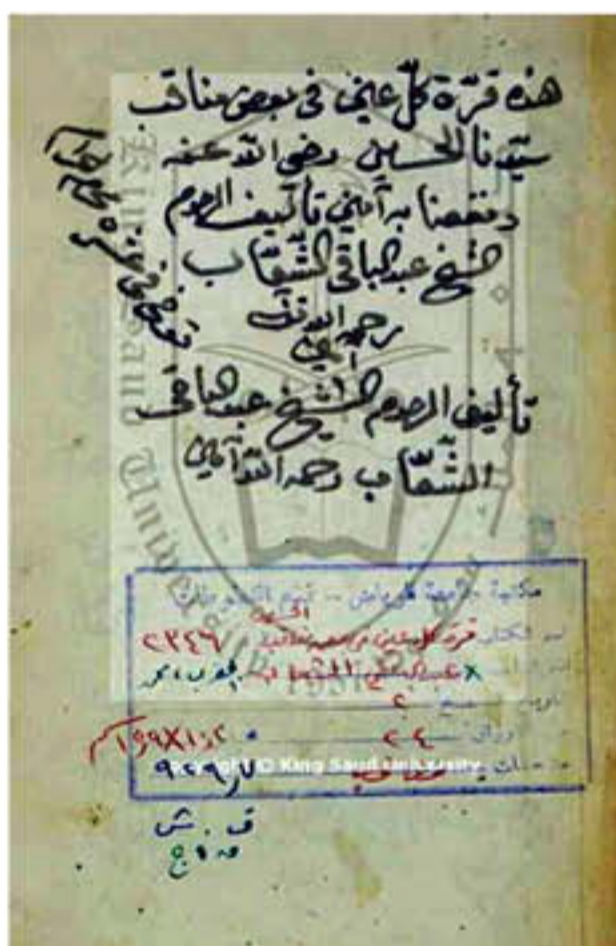 هذه قرّة كلّ عين في بعض مناقب
سيّدنا الحسين رضي الله عنه
ونفعنا به آمين تأليف المرحوم
الشيخ عبد الباقي الشّعّاب
رحمه الله تعالى
آمين
تأليف المرحوم الشيخ عبد الباقي
الشّعّاب رحمه الله آمين
توفي في
King Saud University
مكتبة جامعة الرياض - قسم المخطوطات
الحسين
الكتاب قرة كل عين في بعض مناقب ٢٣٤٦
عبد الباقي الشعاب
٢٤
copyright © King Saud university
ف . ش